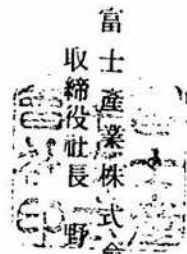 富士產業株式会
取締役社長 野